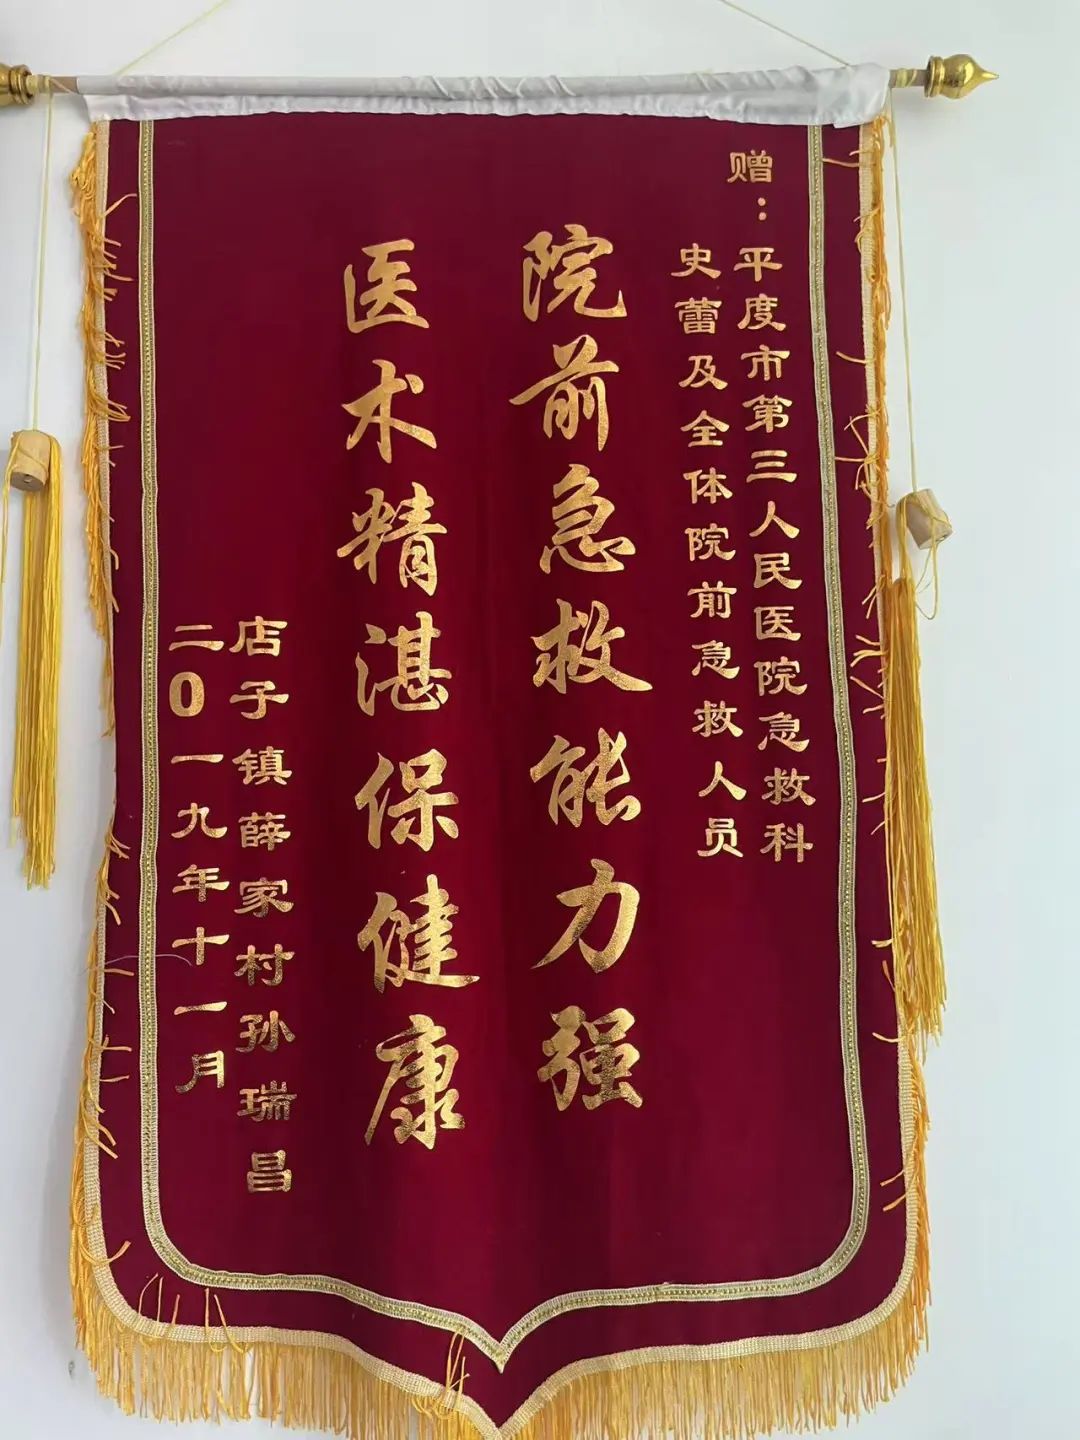 赠：平度市第三人民医院急救科
史蕾及全体院前急救人员
院前急救能力强
医术精湛保健康
店子镇薛家村孙瑞昌
二0一九年十一月